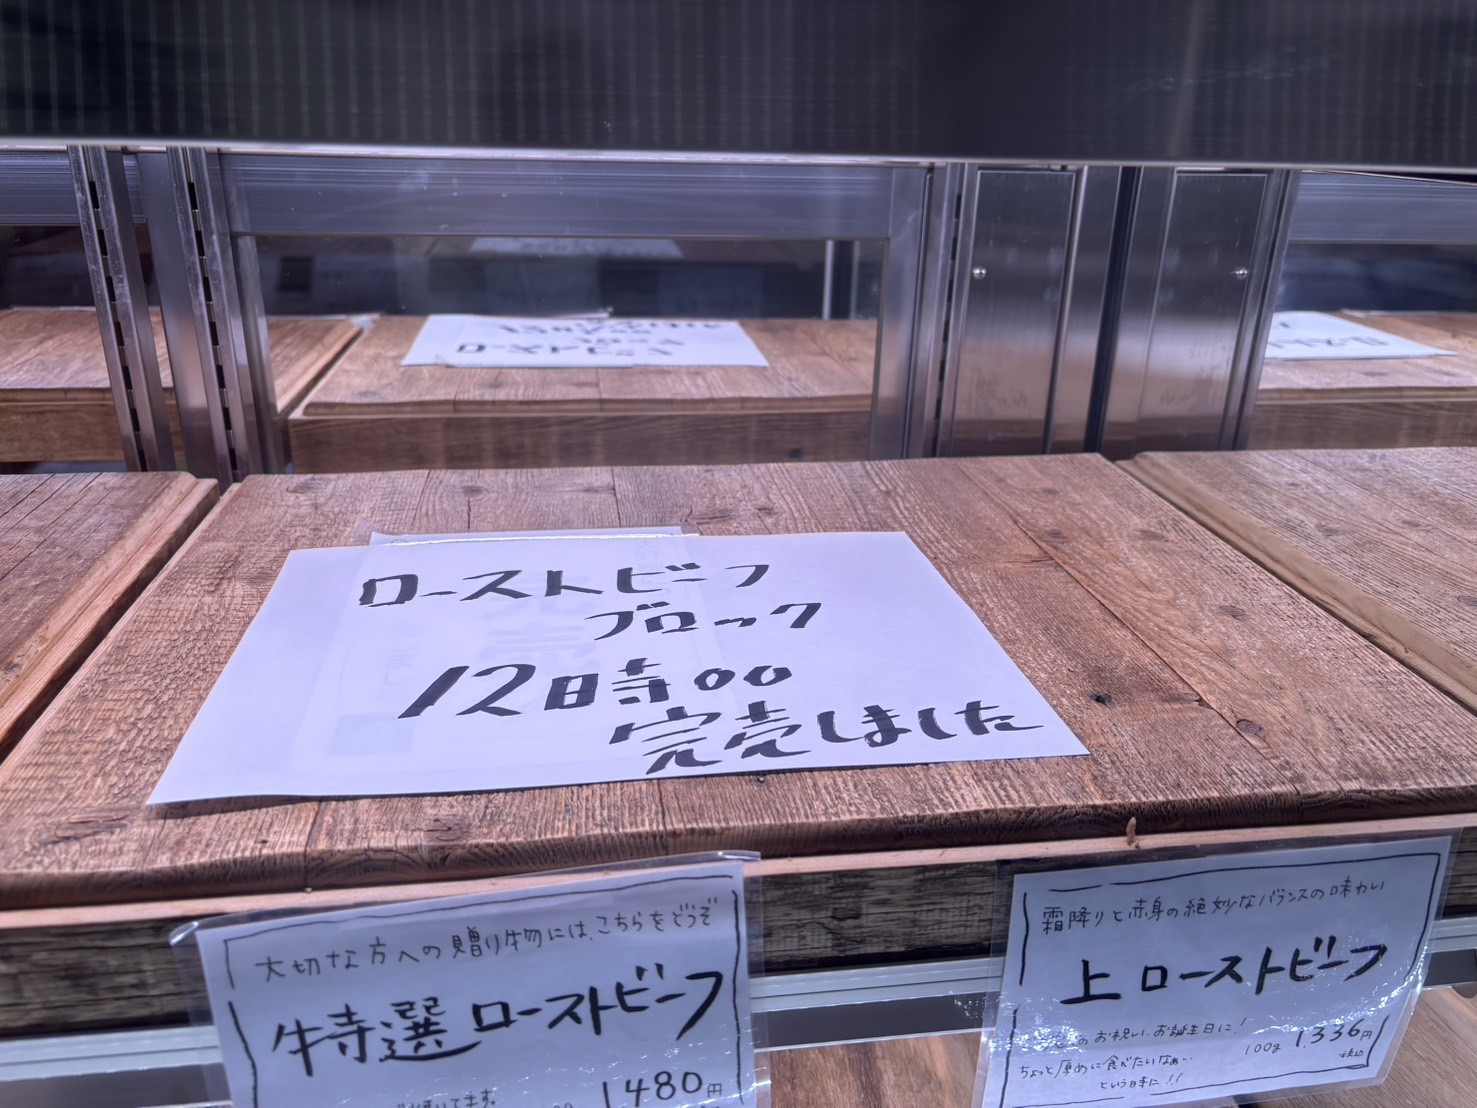 ローストビーフ
ブロック
12時00
完売しました
大切な方への贈り物には、こちらをどうぞ
特選ローストビーフ
1480円
霜降りと赤身の絶妙なバランスの味わい
上ローストビーフ
のお祝い、お誕生日に!
100g 1,336円
税込
ちょっと厚めに食べたいなぁ…
という時に!!